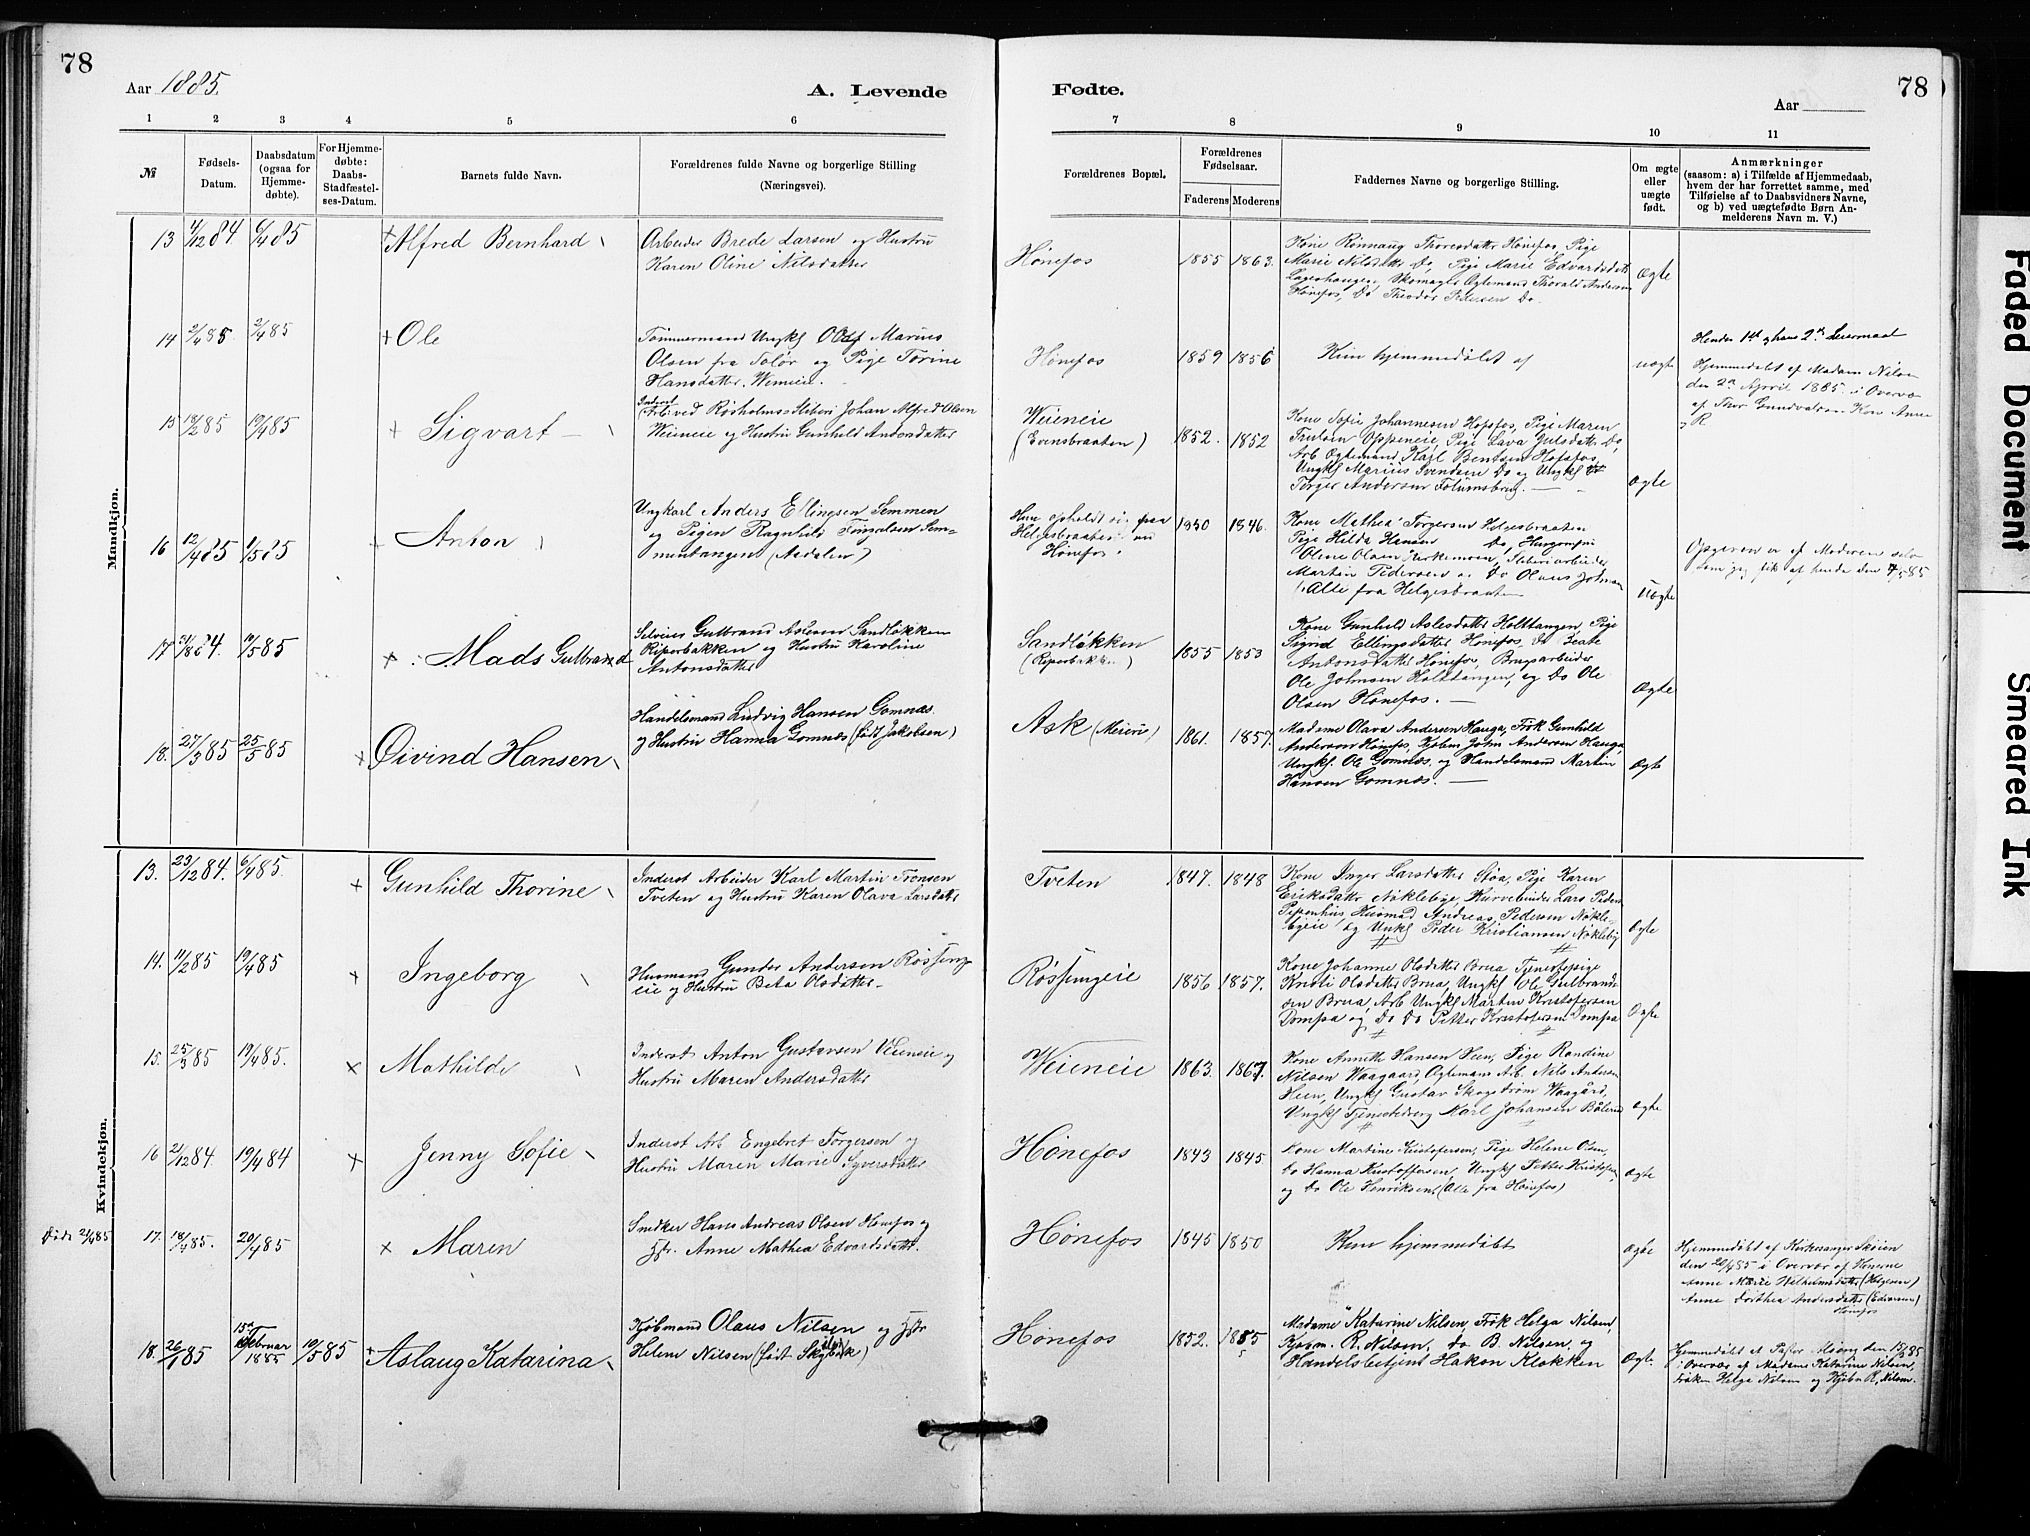 78
Aar 1885.
A. Levende
Fødte.
78
Aar
1 2 3 4 5 6
7 8 9 10 11
№
Fødsels-
Datum.
Daabsdatum
(ogsaa for
Hjemme-
døbte).
For Hjemme-
døbte:
Daabs-
Stadfæstel-
ses-Datum.
Barnets fulde Navn.
Forældrenes fulde Navne og borgerlige Stilling
(Næringsvei).
Forældrenes Bopæl.
Forældrenes
Fødselsaar.
Faderens
Moderens
Faddernes Navne og borgerlige Stilling.
Om ægte
eller
uægte
født.
Anmærkninger
(saasom: a) i Tilfælde af Hjemmedaab,
hvem der har forrettet samme, med
Tilføielse af to Daabsvidners Navne,
og b) ved uægtefødte Børn An-
melderens Navn m. V.)
Mandkjøn.
13 4/12 84 6/4 85
Alfred Bernhard
Arbeider Brede Larsen og Hustru
Karen Oline Nilsdatter
Hønefos
1855 1863.
Kone Rønnaug Thoresdatter Hønefos, Pige
Marie Nilsdatter Do, Pige Marie Edvardsdatter
Skomager Ogtemand Thorald Andersen
Hønefos, Do Theodor Do.
ægte
14 2/4 85 2/4 85
Ole
Tømmermand Ungkl Olaf Marius
Olsen fra Solør og Pige Torine
Hansdatter, Weineie.
Hønefos
1859 1856
Kun hjemmedøbt af
uægte
Hendes 1ste og hans 2det Leiermaal
Hjemmedøbt af Madam Nilsen
den 2den April 1885 i Overvær
af Thor Gundvaldsen Kone Anne
R
15 18/2 85 19/4 85
Sigvart
Inderst
Arb ved Røsholms Sliberi Johan Alfred Olsen
Weineie og Hustru Gunhild Andersdatter
Weieneie
(Evensbraaten)
1852. 1852
Kone Sofie Johannesen Hofsfos, Pige Maren
Oppeneie, Pige Lava Do,
Arb Ogtemand Karl Bentsen Hofsfos,
Ungkl Marius Svendsen Do og Ungkl
Torger Andersen Follumsbrug.
ægte
16 12/4 85 1/5 85
Anton
Ungkarl Anders Ellingsen Semmen
og Pigen Ragnhild Sem-
mentangen (Aadalen)
Hun opholdt sig paa
Helgesbraaten nu
Hønefos
1850 1846.
Kone Mathea Torgersen Helgesbraaten
Pige Hilda Hansen Do,
Oline Olsen Sliberiarbeider
Martin Pedersen Do Olaus Johnsen
Alle fra Helgesbraaten
Uægte
Opgaven er af Moderen selv
som jeg fik af hende den 7/5 85
17 31/8 84. 10/5 85
Mads Gulbrand
Selveier Gulbrand Aslesen Sandløkken
Riperbakken og Hustru Karoline
Antonsdatter
Sandløkken
(Riperbakk..)
1855 1853
Kone Gunhild Aslesdatter Holttangen, Pige
Sigrid Ellingsdatter Hønefos, do Beate
Antonsdatter Hønefos, Brugsarbeider
Ole Johnsen Holttangen, og Do Ole
Olsen Hønefos.
ægte
18. 27/3 85 25/5 85
Øivind Hansen
Handelsmand Ludvig Hansen Gomnæs
og Hustru Hanna Gomnæs (født Jakobsen)
Ask (Meieri)
1861. 1857.
Madame Olava Andersen Hauga, Frøk Gunhild
Andersen Hønefos, Kjøbm John Andersen Hauga,
Ungkl. Ole Gomnæs, og Handelsmand Martin
Hansen Gomnæs.
ægte
Kvindekjøn.
13. 23/12 84. 6/4 85.
Gunhild Thorine
Inderst Arbeider Karl Martin Tronsen
Tveten og Hustru Karen Olava Larsdatter
Tveten
1847. 1848
Kone Inger Larsdatter Støa, Pige Karen
Eriksdatter Nøklebye, Kurvebinder Lars Pedersen
Pipenhus, Husmand Andreas Pedersen Nøkle-
byeie og Ungkl Peder Kristiansen Nøkleby
ægte
14. 11/2 85 19/4 85
Ingeborg
Husmand Gunder Andersen Røssing
eie og Hustru Beta Olsdatter
Røssingeie
1856 1857.
Kone Johanne Olsdatter Brua Tjenestepige
Kristi Olsdatter Brua, Ungkl Ole Gulbrand-
sen Brua, Arb Ungkl Martin Kristofersen
Dompa og Do Do Petter Kristofersen Dompa
ægte
15. 25/3 85 19/4 85.
Mathilde
Inderst Anton Gustavsen Veieneie og
Hustru Maren Andersdatter
Weieneie
1863. 1867.
Kone Annette Hansen Heen, Pige Randine
Nilsen Waagaard, Ogtemand Arb. Nils Andersen
Heen, Ungkl Gustav Skogstrøm Waagård,
Ungkl Tjenestedreng Karl Johansen
ægte
16 21/12 84. 19/4 84
Jenny Sofie
Inderst Arb Engebret Torgersen og
Hustru Maren Marie Syversdatter
Hønefos
1843 1845
Kone Martine Kristofersen, Pige Helene Olsen,
Do Hanna Kristoffersen, Ungkl Petter Kristofersen
og Do Ole Henriksen, (Alle fra Hønefos)
ægte
Døde 21/4 85
17. 18/4 85. 20/4 85
Maren
Snedker Hans Andreas Olsen Hønefos og
Hstr. Anne Mathea Edvardsdatter.
Hønefos
1845 1850
Kun hjemmedøbt
ægte
Hjemmedøbt af Kirkesanger Skøien
den 20/4 85 i Overvær af Konerne
Anne Marie Wilhelmsdatter (Helgesen)
Anne Dorthea Andersdatter (Edvardsen)
Hønefos
18. 26/1 85
15de
Februar
1885
10/5 85
Aslaug Katarina
Kjøbmand Olaus Nilsen og Hstr
Helene Nilsen (født Skybak)
Hønefos
1852. 1855
Madame Katarine Nilsen, Frøk Helga Nilsen,
Kjøbm. R. Nilsen, do B. Nilsen, og
Handelsbetjent Hakon Klokken
ægte
Hjemmedøbt af Pastor den 15/2 85
i Overvær af Madame Katarine Nilsen,
Frøken Helga Nilsen og Kjøbm R. Nilsen.
Faded Document
Smeared Ink